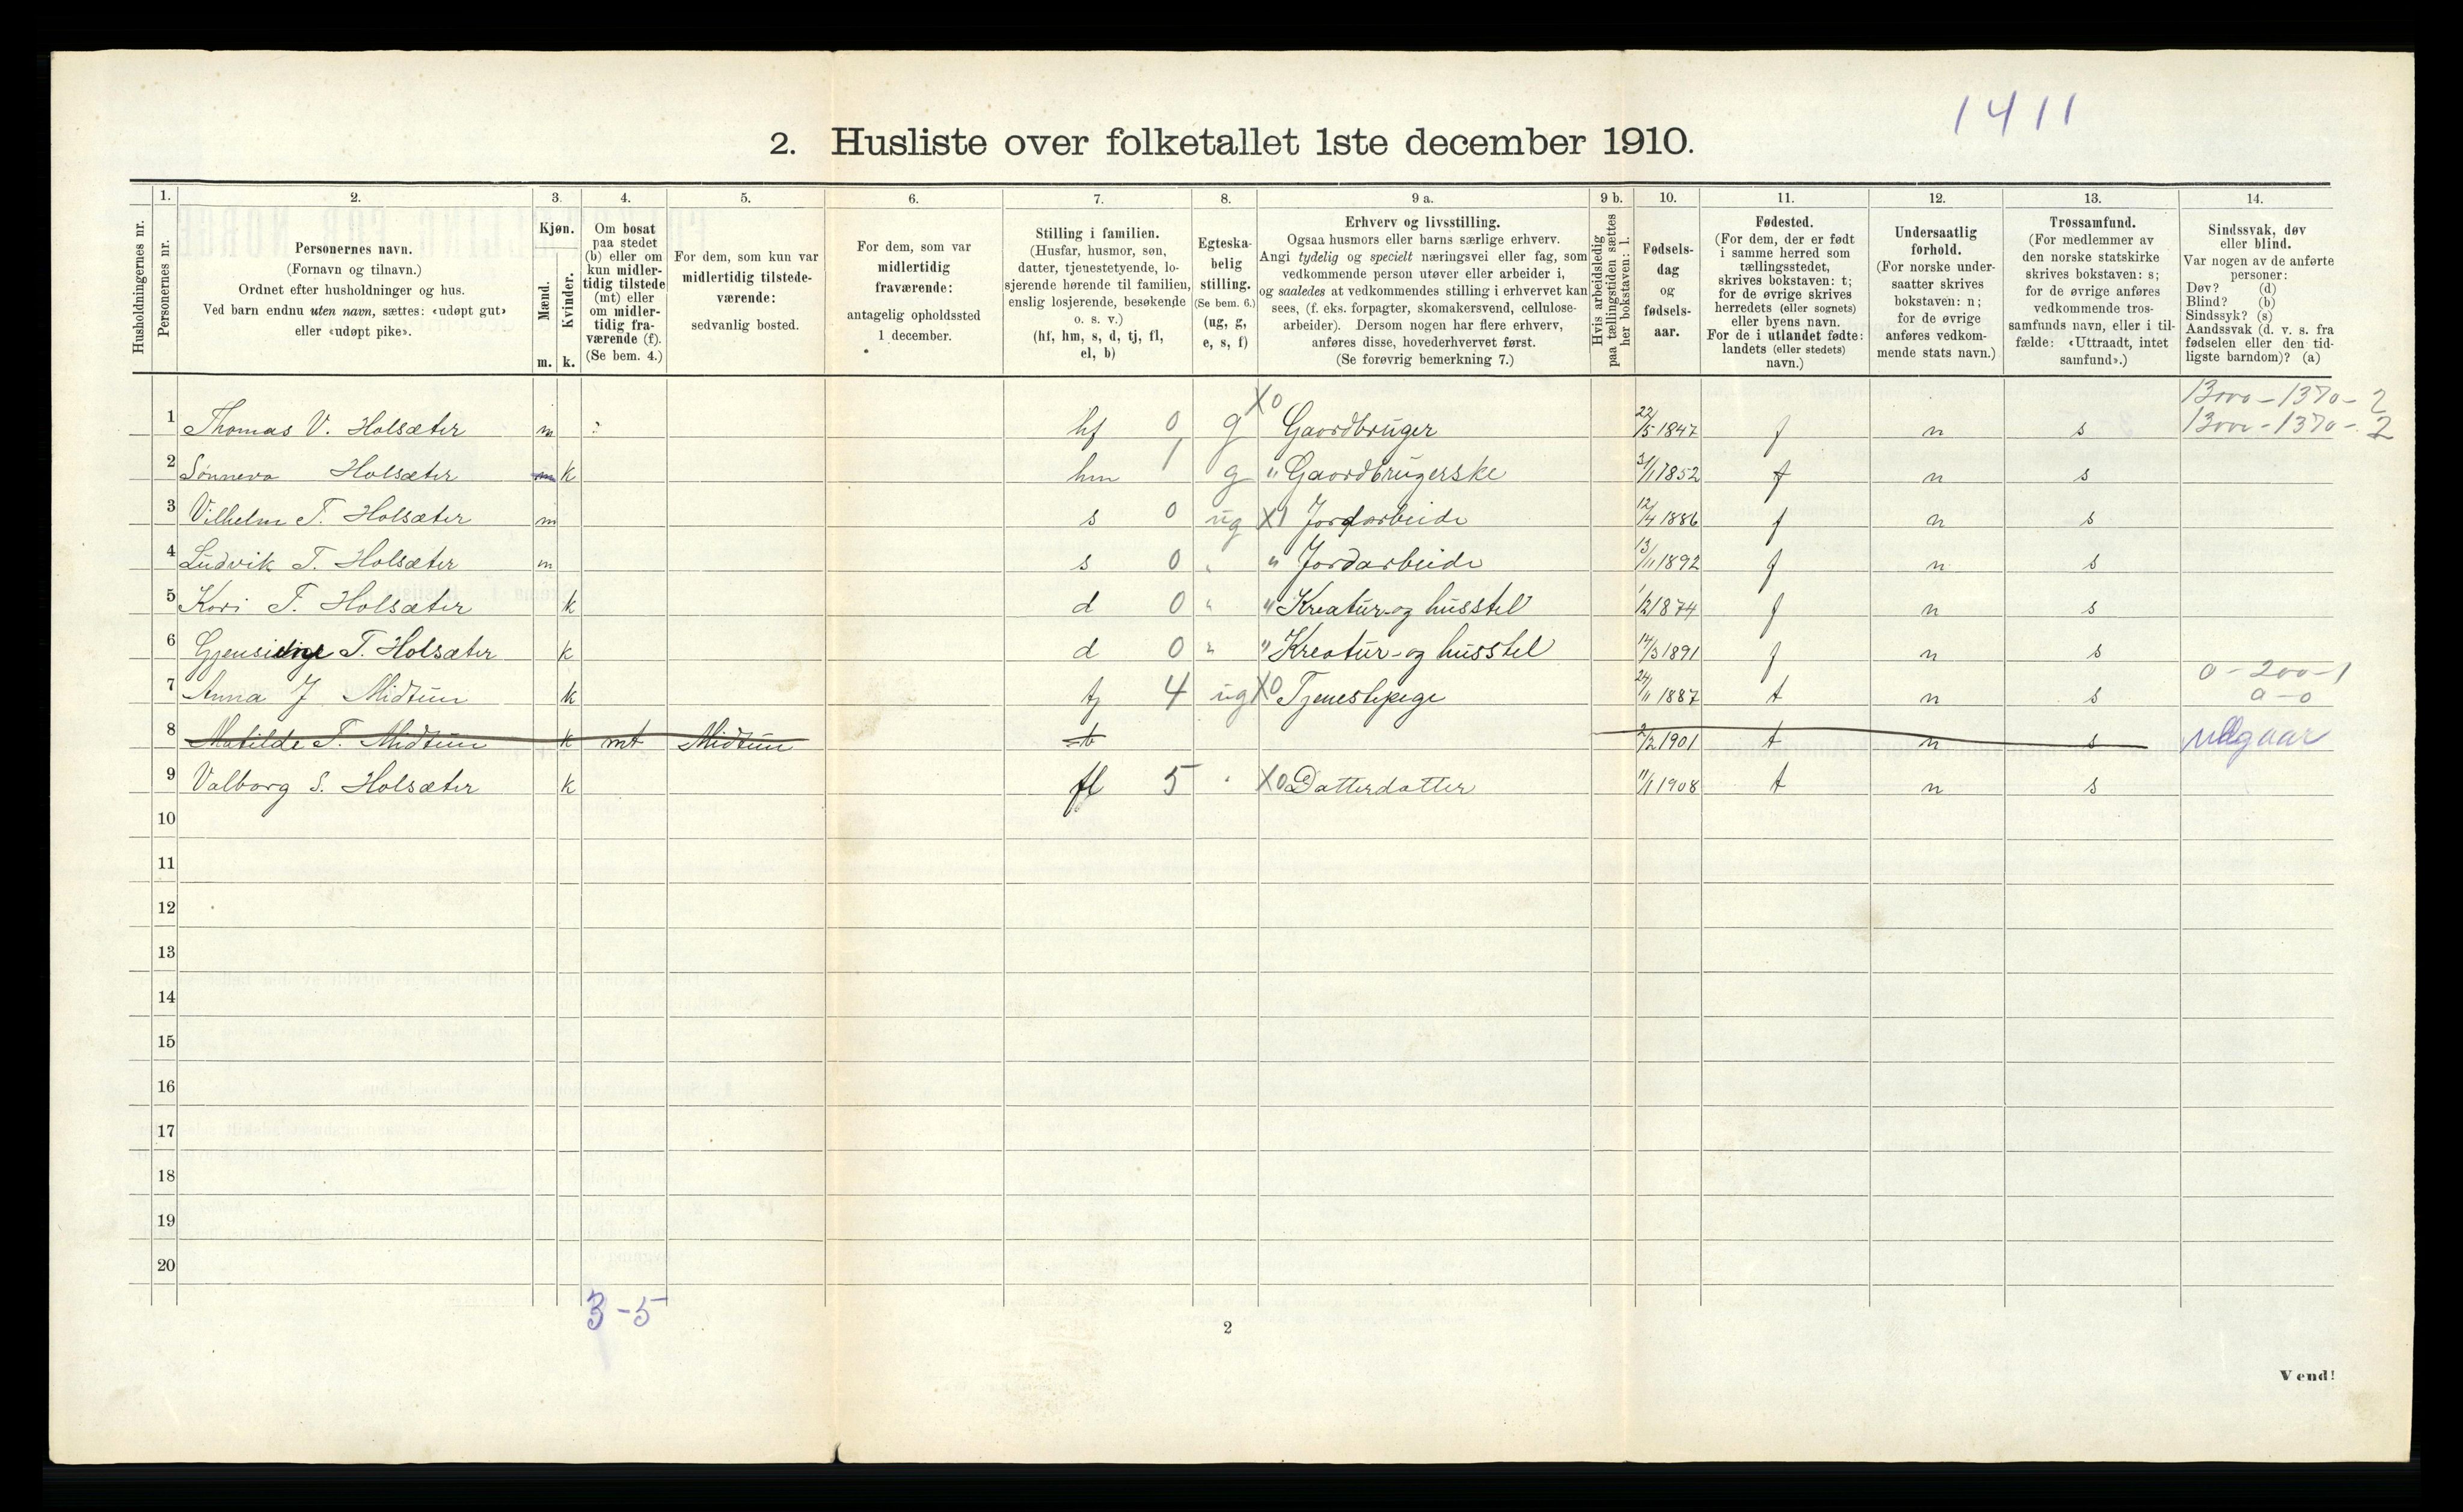 1411
2. Husliste over folketallet 1ste december 1910.
1. 2. 3. 4. 5. 6. 7. 8. 9 a. 9 b. 10. 11. 12. 13. 14.
Husholdningernes nr.
Personernes nr.
Personernes navn.
(Fornavn og tilnavn.)
Ordnet efter husholdninger og hus.
Ved barn endnu uten navn, sættes: «udøpt gut»
eller «udøpt pike».
Kjøn.
Mænd.
Kvinder.
m. k.
Om bosat
paa stedet
(b) eller om
kun midler-
tidig tilstede
(mt) eller
om midler-
tidig fra-
værende (f).
(Se bem. 4.)
For dem, som kun var
midlertidig tilstede-
værende:
sedvanlig bosted.
For dem, som var
midlertidig
fraværende:
antagelig opholdssted
1 december.
Stilling i familien.
(Husfar, husmor, søn,
datter, tjenestetyende, lo-
sjerende hørende til familien,
enslig losjerende, besøkende
o. s. v.)
(hf, hm, s, d, tj, fl,
el, b)
Egteska-
belig
stilling.
(Se bem. 6.)
(ug, g,
e, s, f)
Erhverv og livsstilling.
Ogsaa husmors eller barns særlige erhverv.
Angi tydelig og specielt næringsvei eller fag, som
vedkommende person utøver eller arbeider i,
og saaledes at vedkommendes stilling i erhvervet kan
sees, (f. eks. forpagter, skomakersvend, cellulose-
arbeider). Dersom nogen har flere erhverv,
anføres disse, hovederhvervet først.
(Se forøvrig bemerkning 7.)
Hvis arbeidsledig
paa tællingstiden sættes
her bokstaven: l.
Fødsels-
dag
og
fødsels-
aar.
Fødested.
(For dem, der er født
i samme herred som
tællingsstedet,
skrives bokstaven: t;
for de øvrige skrives
herredets (eller sognets)
eller byens navn.
For de i utlandet fødte:
landets (eller stedets)
navn.)
Undersaatlig
forhold.
(For norske under-
saatter skrives
bokstaven: n;
for de øvrige
anføres vedkom-
mende stats navn.)
Trossamfund.
(For medlemmer av
den norske statskirke
skrives bokstaven: s;
for de øvrige anføres
vedkommende tros-
samfunds navn, eller i til-
fælde: «Uttraadt, intet
samfund».)
Sindssvak, døv
eller blind.
Var nogen av de anførte
personer:
Døv? (d)
Blind? (b)
Sindssyk? (s)
Aandssvak (d. v. s. fra
fødselen eller den tid-
ligste barndom)? (a)
1300 - 1370 - 2
1 Thomas V. Holsæter m hf 0 g X0 Gaordbruger 22/5 1847 t n s 1300 - 1370 - 2
2 Sønneva Holsæter m k hm 1 g " Gaordbrugerske 3/11 1852 t n s
3 Vilhelm T. Holsæter m s 0 ug X1 Jordarbeide 12/4 1886 t n s
4 Ludvik T. Holsæter m s 0 " " Jordarbeide 13/11 1892 t n s
5 Kari T. Holsæter k d 0 " " Kreatur- og husstel 1/12 1874 t n s
6 T. Holsæter k d 0 " " Kreatur- og husstel 14/3 1891 t n s
0 - 200 - 1
7 Anna J Midtun k tj 4 ug X0 Tjenestepige 24/11 1887 t n s 0 - 0
8 Matilde T. Midtun k mt Midtun b 2/2 1901 t n s udgaar
9 Valborg S. Holsæter k fl 5 " X0 Datterdatter 11/1 1908 t n s
10
11
12
13
14
15
16
17
18
19
20
3 - 5
2
Vend!